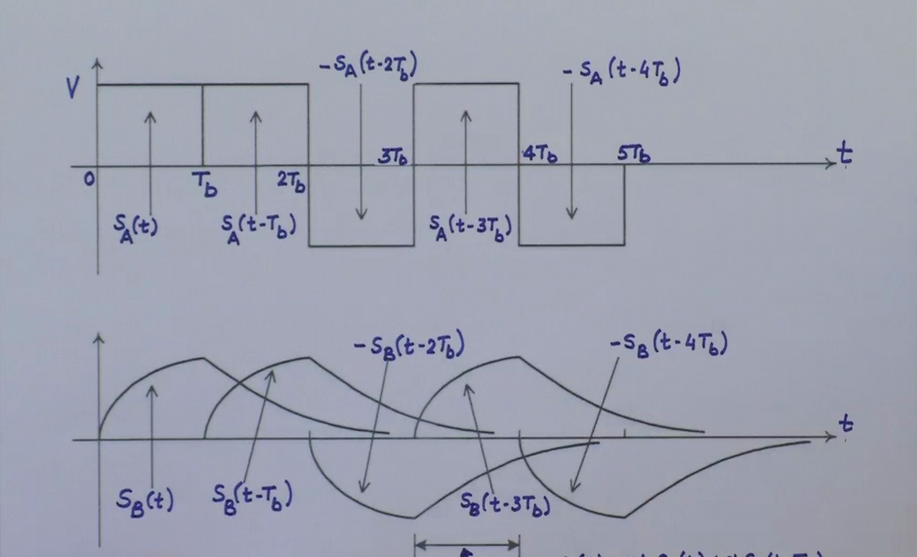 -S_A(t-2T_b)
-S_A(t-4T_b)
V
3T_b
4T_b
5T_b
t
0
T_b
2T_b
S_A(t)
S_A(t-T_b)
S_A(t-3T_b)
-S_B(t-2T_b)
-S_B(t-4T_b)
t
S_B(t)
S_B(t-T_b)
S_B(t-3T_b)